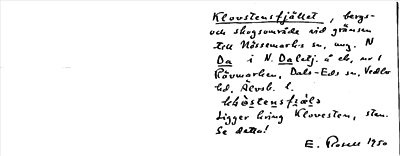 Klovstensfjället, bergs-
och skogsområde vid gränsen
till Nössemarks sn, ung. N
Da i N. Daletj. å ek. nr 1
Rövmarken, Dals-Eds sn, Vedbo
hd. Älvsb. l.
Ligger kring Klovesten, sten.
Se detta!
E. Rosell 1950